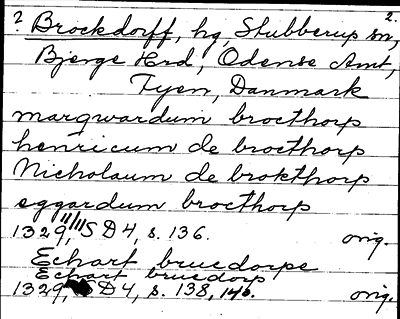 ? Brockdorff, hg, Stubberup sn, 2.
Bjerge Hrd, Odense Amt,
Fyen, Danmark
marqwardum brocthorp
henricum de brocthorp
Nicholaum de brokthorp
eggardum brocthorp
1329, 11/11 SD4, s. 136. orig.
Echart brucdorpe
Echart brucdorp
1329, SD4, s. 138, 146. orig.